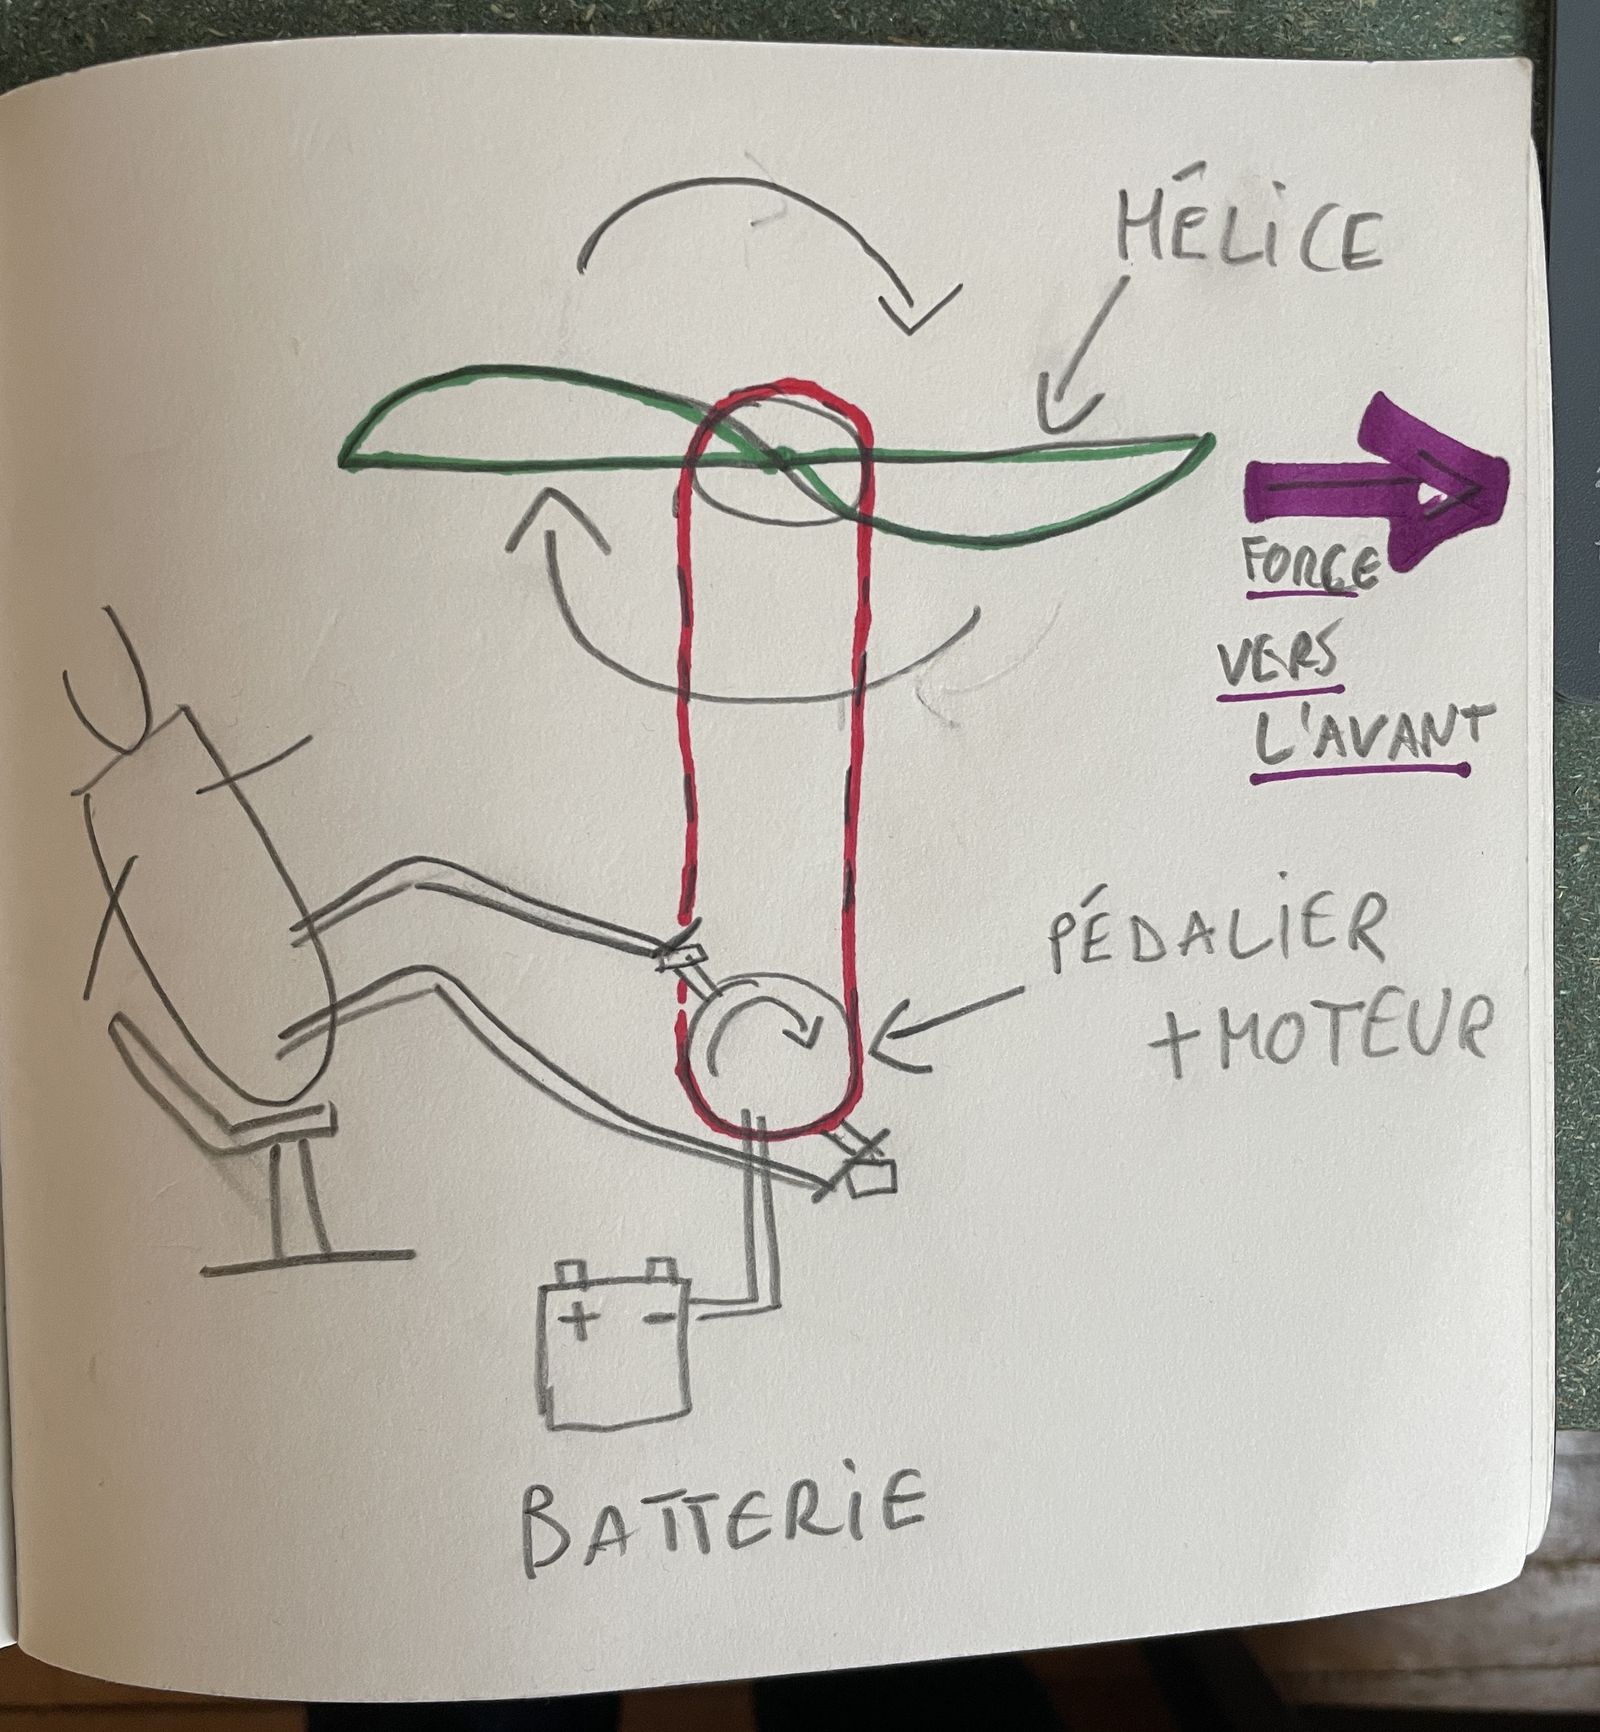 HÉLiCE
FORCE
VERS
L'AVANT
PÉDALiER
+ MOTEUR
+ -
BATTERiE